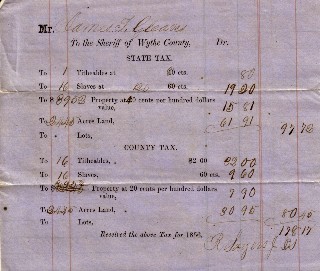 Mr. James T.
To the Sheriff of Wythe County, Dr.
STATE TAX.
To 1 Titheables at 80 cts. 80
To 16 Slaves at 120 cts. 19 20
To $ Property at 20 cents per hundred dollars value, 15 81
To Acres Land, 61 91
To Lots, 97 72
COUNTY TAX.
To 16 Titheables, " $2 00 32 00
To 16 Slaves, 60 cts. 9 60
To $ Property at 20 cents per hundred dollars value, 7 90
To Acres Land, 30 95 80 45
To Lots, 178 17
Received the above Tax for 1856,